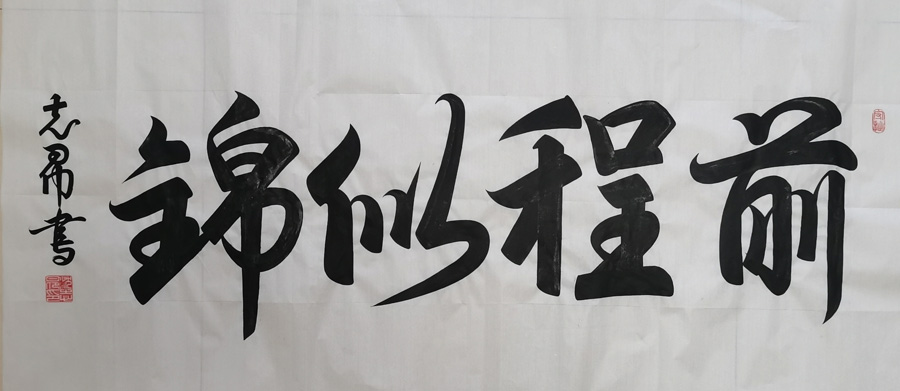 前程似錦
志帚書